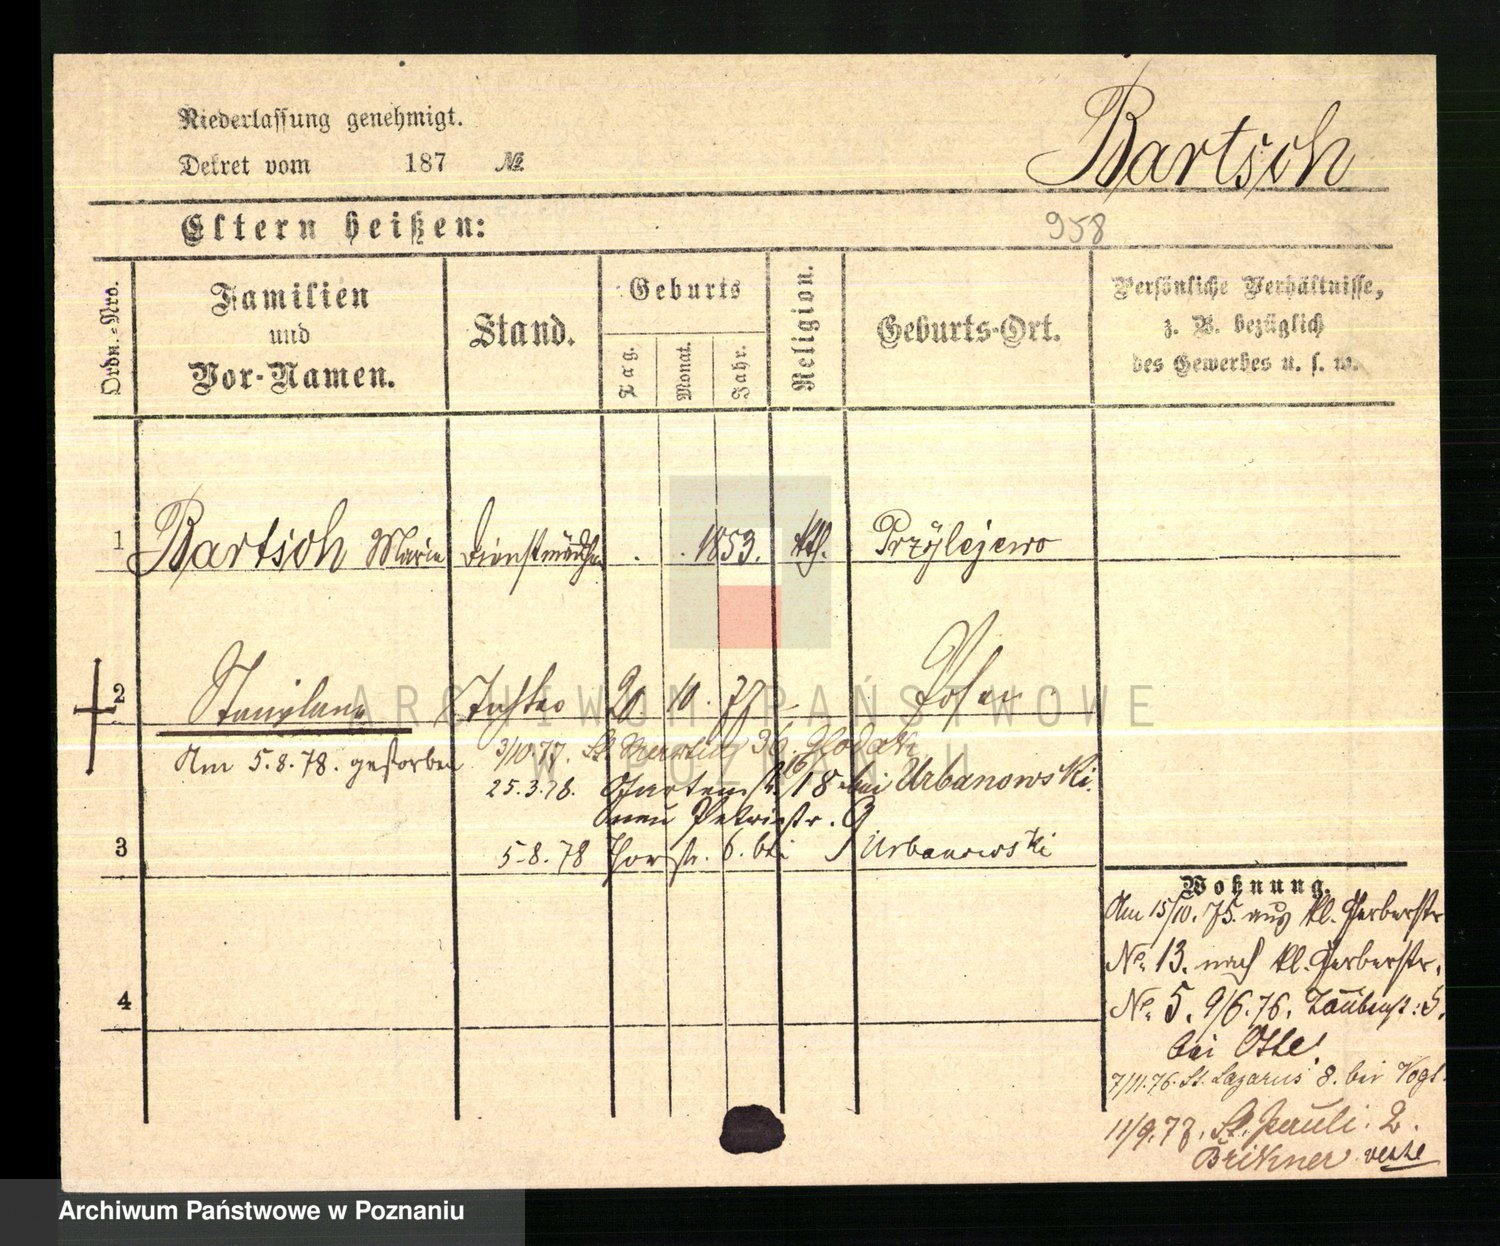 Niederlassung genehmigt.
Dekret vom 187 №
Bartsch
Eltern heißen:
958
Ordn.-Nro.
Familien
und
Vor-Namen.
Stand.
Geburts
Tag.
Monat.
Jahr.
Religion.
Geburts-Ort.
Persönliche Verhältnisse,
z. B. bezüglich
des Gewerbes u. s. w.
1 Bartsch Marie Dienstmädchen . . 1853. kth. Przylejewo
2 Stanislaus Tochter 20. 10. 77 Posen
Am 5.8.78. gestorben
3/10.77. St. Martin 36.
25.3.78. Gartenstr. 16 18 bei Urbanowski.
neu Petristr. 9
3
5.8.78 Thorstr. 6. bei Urbanowski
4
Wohnung.
Am 15/10.75. aus kl. Gerberstr
No. 13. nach kl. Gerberstr.
No. 5. 9/6.76. Taubenst: 5.
bei Otte.
7/11.76. St. Lazarus 8. bei Vogt.
11/9.77. St. Pauli. 2.
Brikner verte
ARCHIWUM PAŃSTWOWE
W POZNANIU
Archiwum Państwowe w Poznaniu